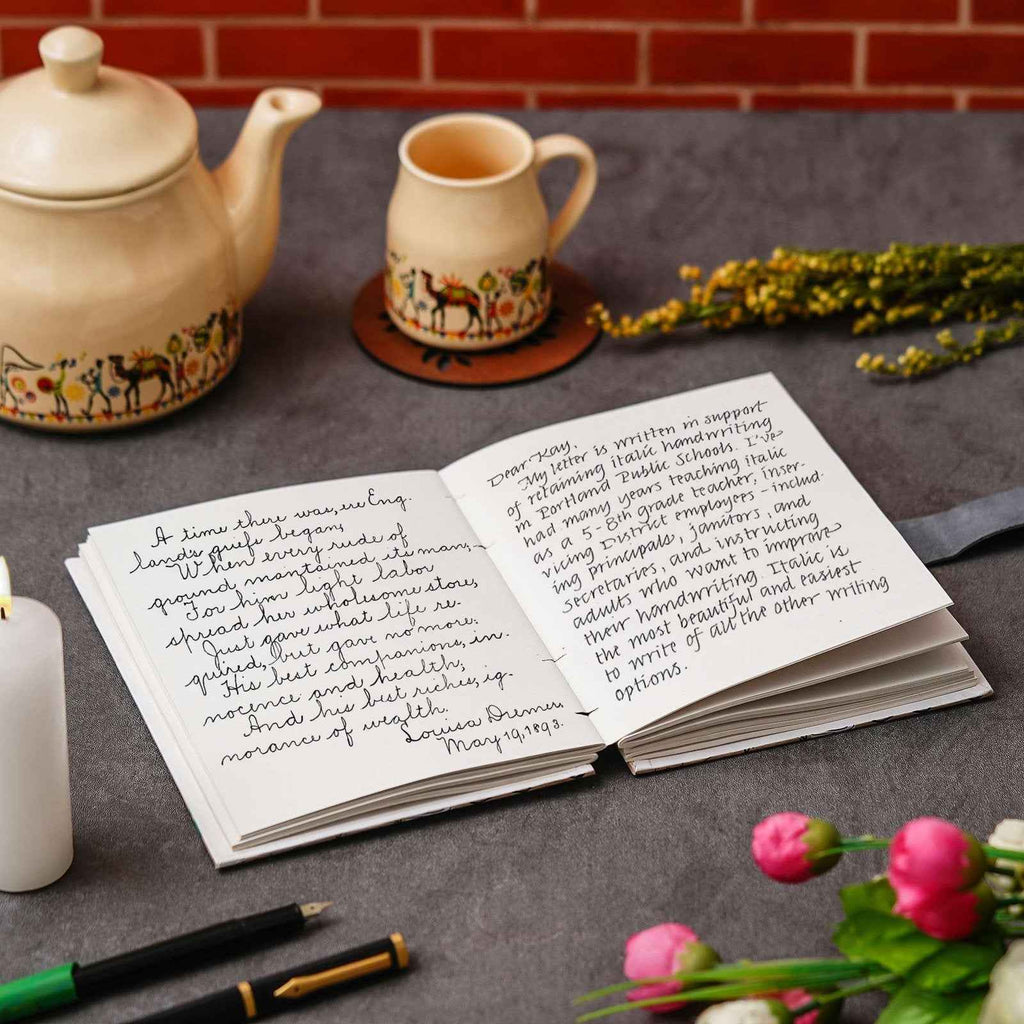 A time there was, ere Eng-
land's griefs began,
When every rude of
ground maintained its man;
For him light labor
spread her wholesome store,
Just gave what life re-
quired, but gave no more.
His best companions, in-
nocence and health;
And his best riches, ig-
norance of wealth.
Louisa Diemer
May 19, 1893.
Dear Kay,
My letter is written in support
of retaining italic handwriting
in Portland Public Schools. I've
had many years teaching italic
as a 5-8th grade teacher, inser-
vicing District employees - includ-
ing principals, janitors, and
secretaries, and instructing
adults who want to improve
their handwriting. Italic is
the most beautiful and easiest
to write of all the other writing
options.